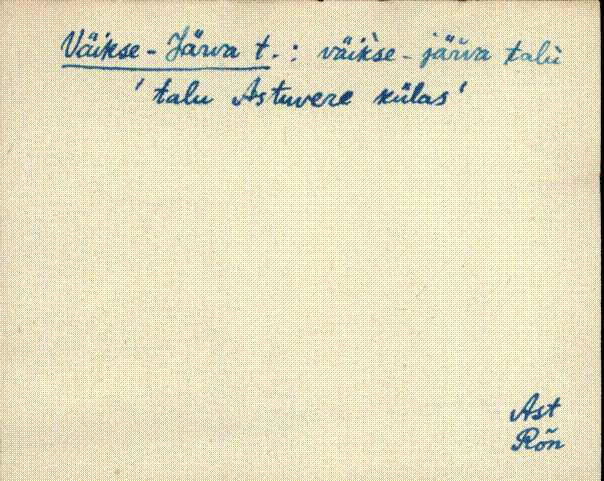 Väikse-Järva t.: väik̀se-järva talù
'talu Astuvere külas'
Ast
Rõn